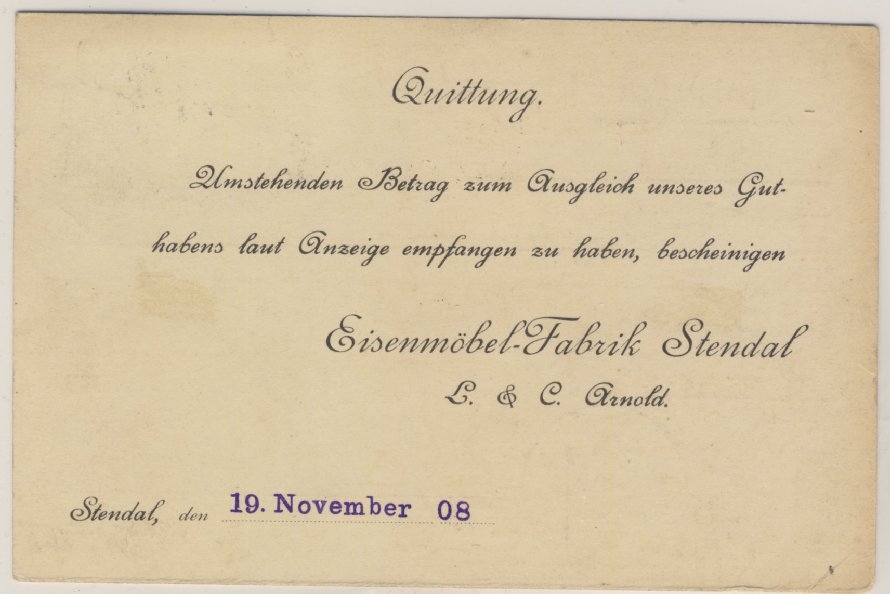 Quittung.
Umstehenden Betrag zum Ausgleich unseres Gut-
habens laut Anzeige empfangen zu haben, bescheinigen
Eisenmöbel-Fabrik Stendal
L. & C. Arnold.
Stendal, den 19. November 08